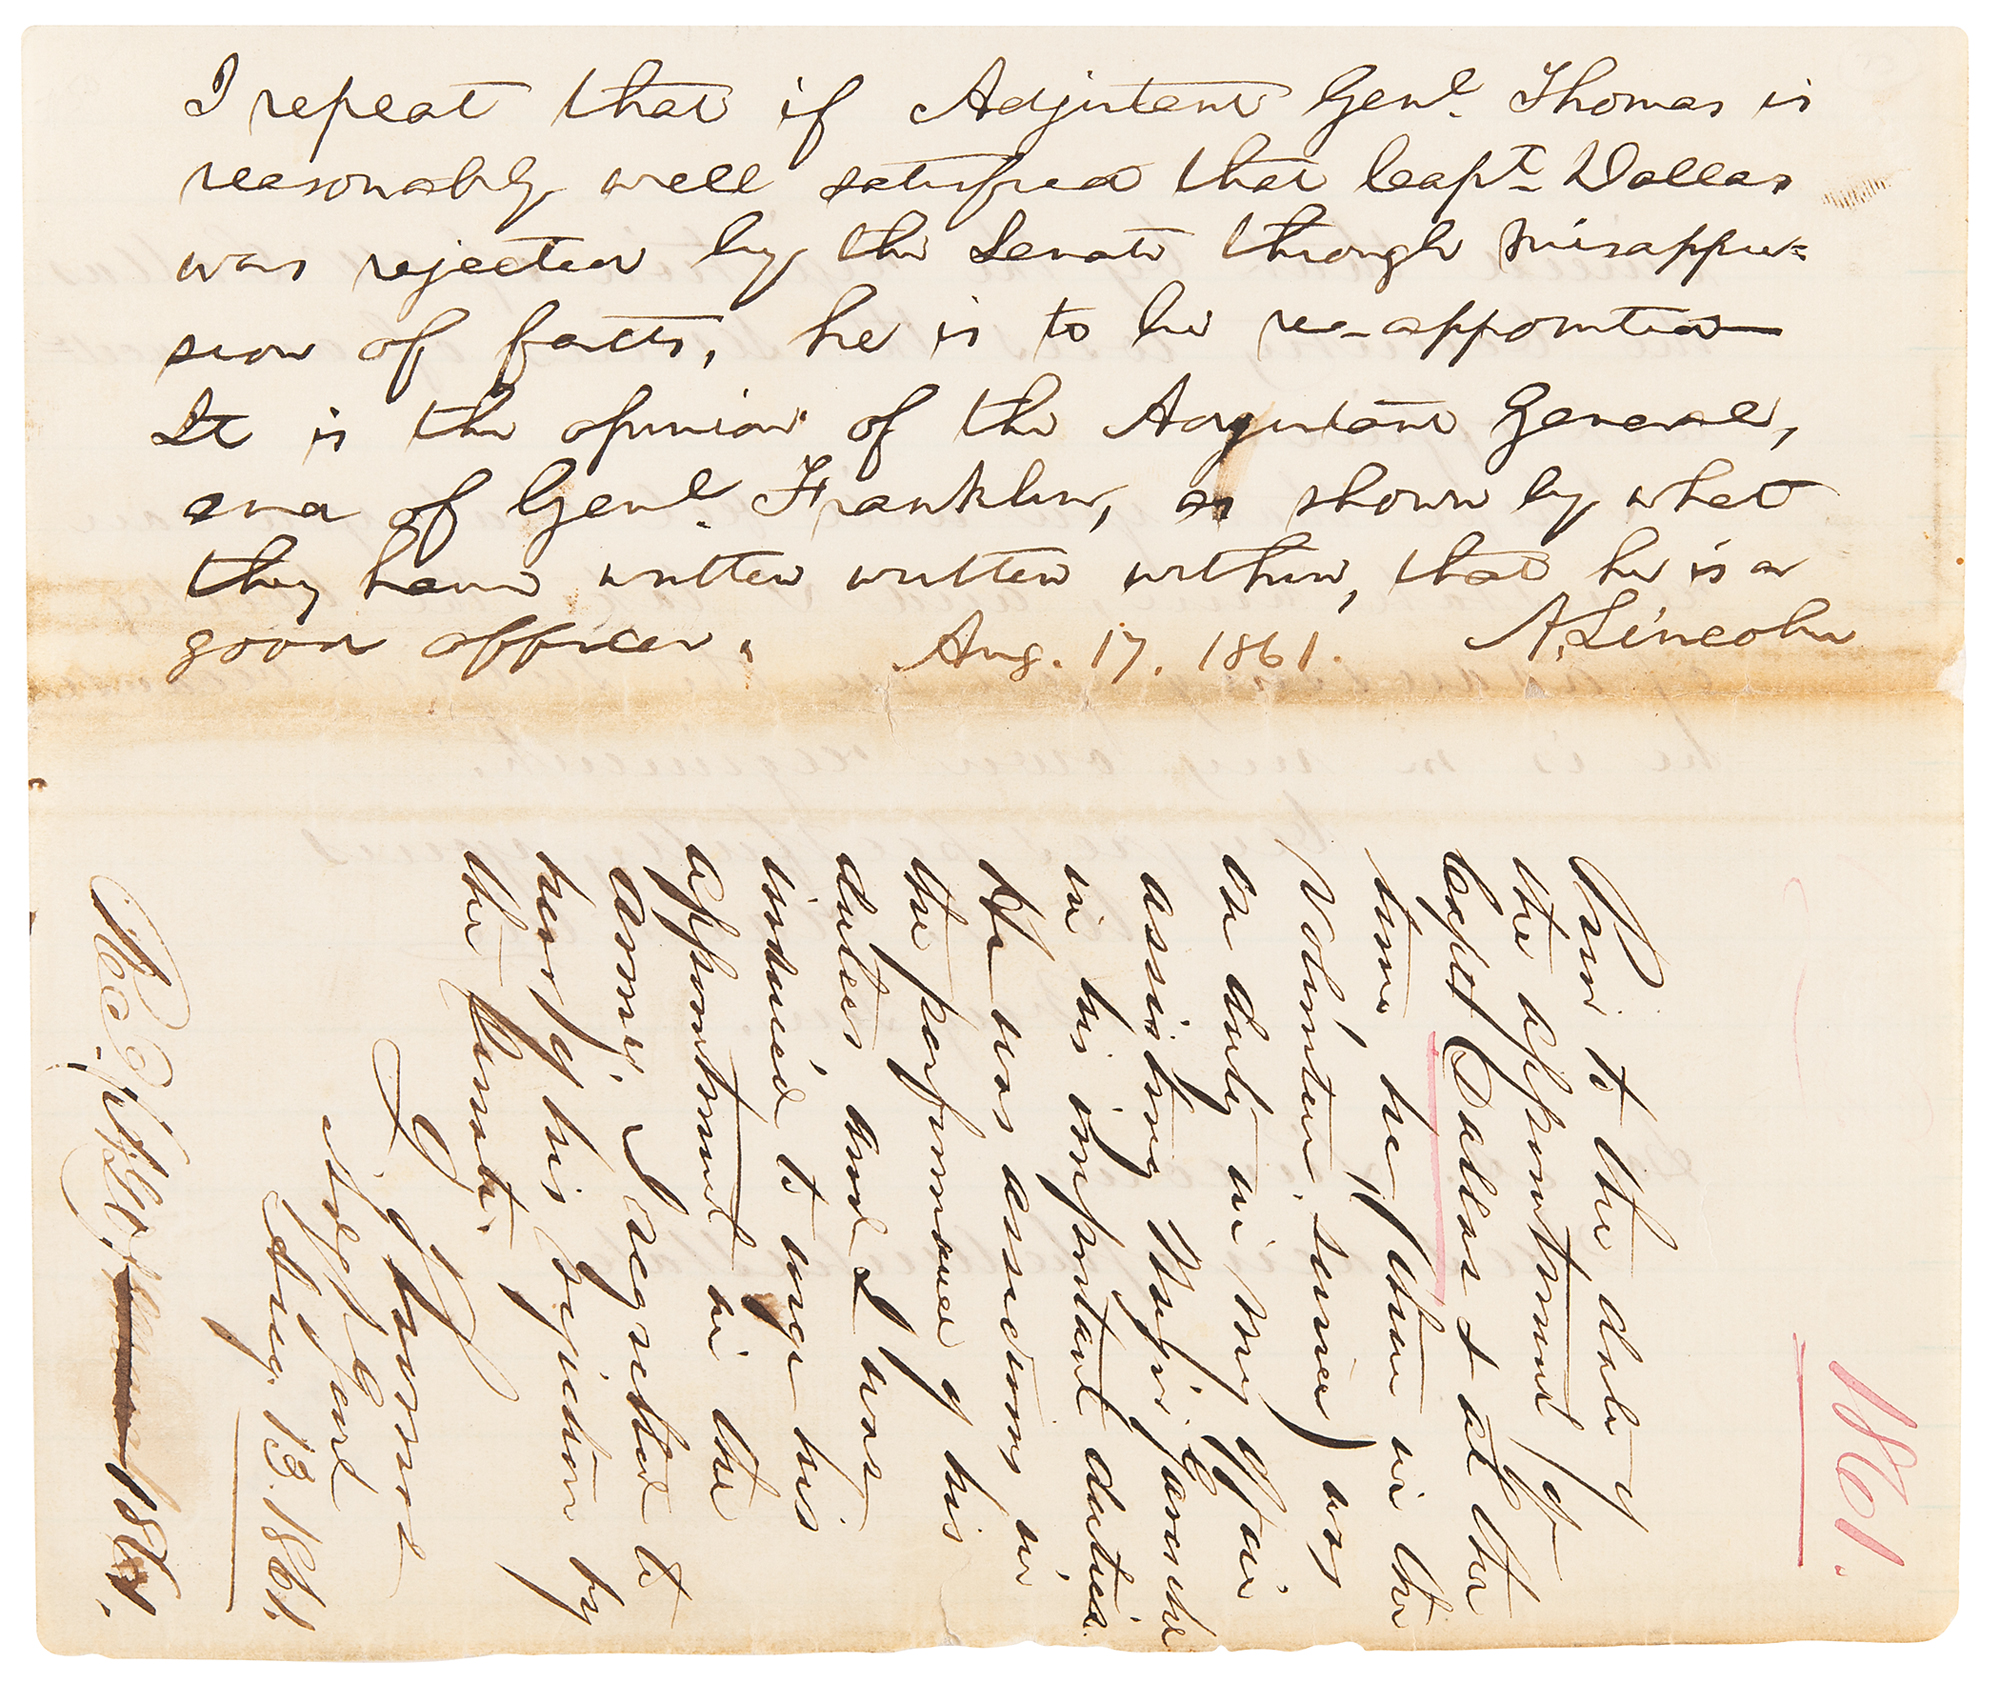 I repeat that if Adjutant Genl. Thomas is
reasonably well satisfied that Capt. Dallas
was rejected by the Senate through misappre=
sion of facts, he is to be re-appointed
It is the opinion of the Adjutant General,
and of Genl. Franklin, as shown by what
they have written written within, that he is a
good officer.
Aug. 17. 1861.
A. Lincoln
1861.
Prior to the date of
the appointment of
Capt Dallas & at the
time, he, (then in the
Volunteer service) was
on duty in my office
assisting
in his important duties.
He was assiduous in
the performance of his
duties and I was
induced to urge his
appointment in the
army. I regretted to
hear of his rejection by
the Senate.
L Thomas
Adjt Genl
Aug. 13. 1861.
Rec.
1861.